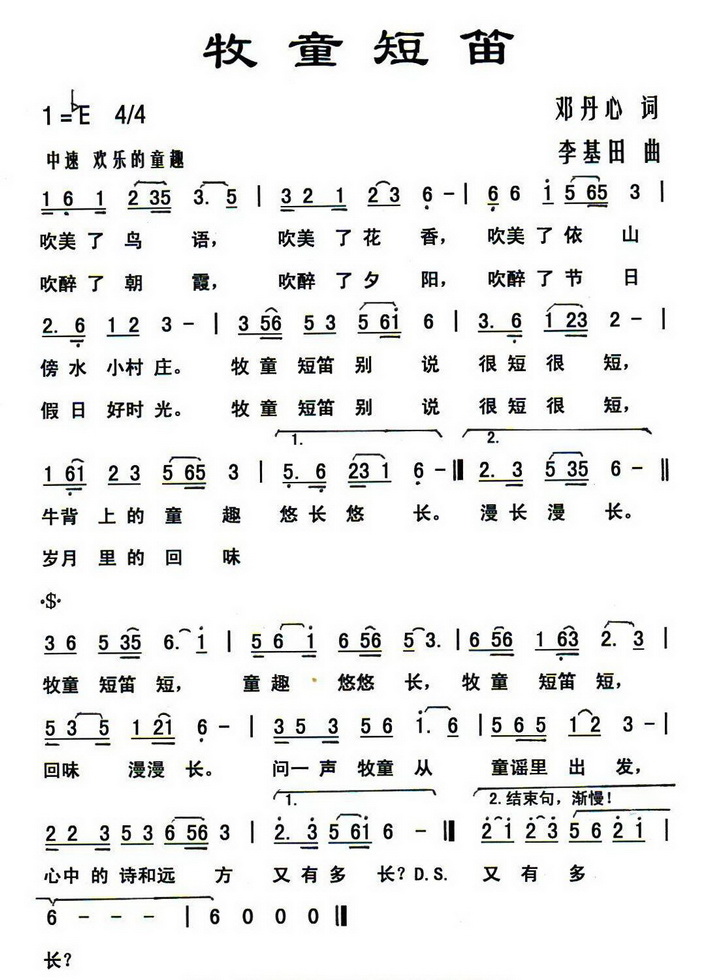 牧童短笛
1=♭E 4/4
邓丹心 词
中速 欢乐的童趣
李基田 曲
1 6 1 2 35 3. 5 | 3 2 1 2 3 6 - | 6 6 i 5 65 3 |
吹美了鸟 语， 吹美了花 香， 吹美了依 山
吹醉了朝 霞， 吹醉了夕 阳， 吹醉了节 日
2. 6 1 2 3 - | 3 56 5 3 5 61 6 | 3. 6 1 23 2 - |
傍水 小村庄。 牧童 短笛 别 说 很短很 短，
假日 好时光。 牧童 短笛 别 说 很短很 短，
1. 2.
1 61 2 3 5 65 3 | 5. 6 23 1 6 - ‖ 2. 3 5 35 6 - ‖
牛背 上的 童 趣 悠长悠 长。 漫长漫 长。
岁月 里的 回 味
·$·
3 6 5 35 6. i | 5 6 i 6 56 5 3. | 6 56 1 63 2. 3 |
牧童 短笛 短， 童趣 悠悠 长， 牧童 短笛 短，
5 3 5 1 21 6 - | 3 5 3 5 6 i. 6 | 5 6 5 1 2 3 - |
回味 漫漫 长。 问一声 牧童 从 童谣里 出 发，
1. 2.结束句，渐慢！
2 2 3 5 3 6 56 3 | 2. 3 5 61 6 - ‖ 2 1 2 3 5 6 2 1 |
心中的 诗和远 方 又有多 长？D.S. 又 有 多
6 - - - | 6 0 0 0 ‖
长？